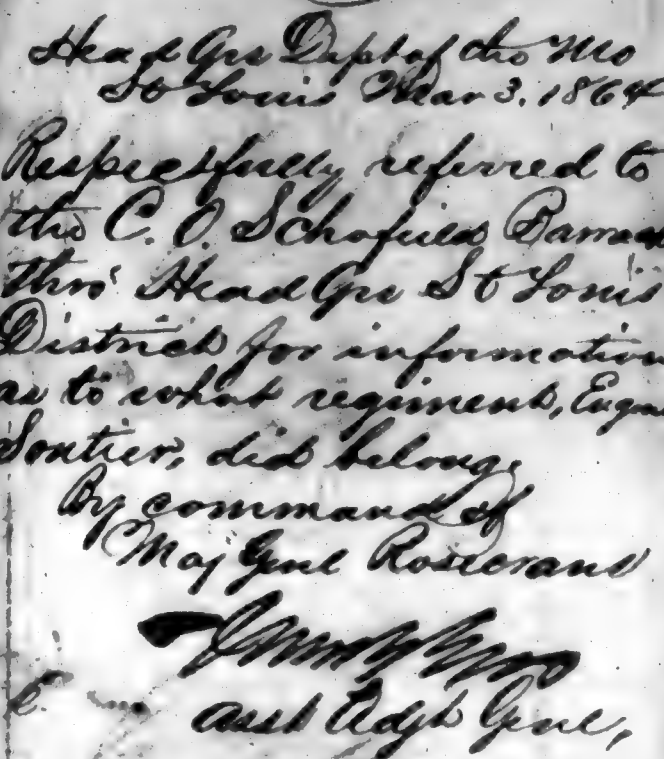 Head Qrs Dept of the Mo
St Louis Mar 3. 1864
Respectfully referred to
the C. O. Schofield Barrack
thro' Head Qrs St Louis
District for information
as to what regiment, Eugene
Soutier, did belong.
By command of
Maj Genl Rosecrans
Asst Adjt Genl,